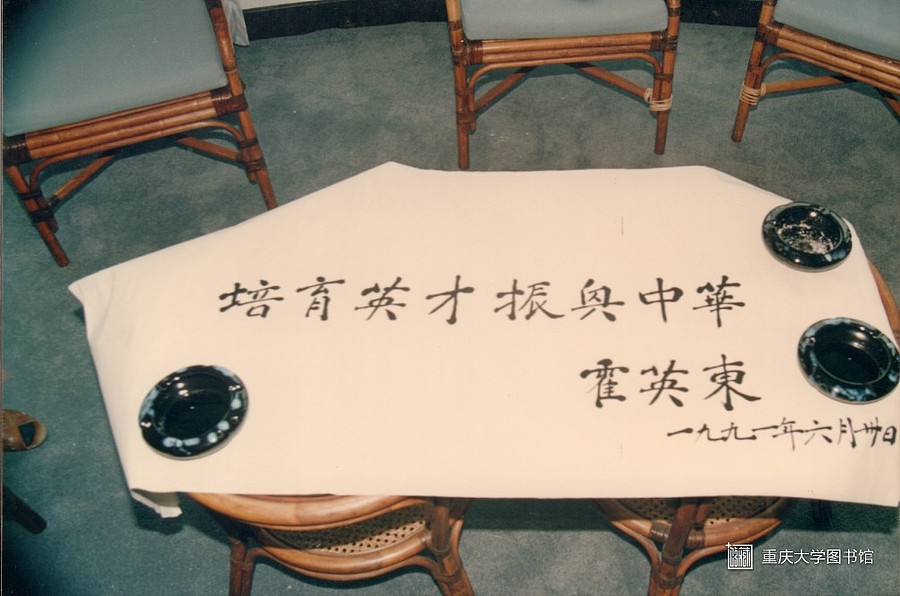 培育英才振興中華
霍英東
一九九一年六月卅日
重庆大学图书馆